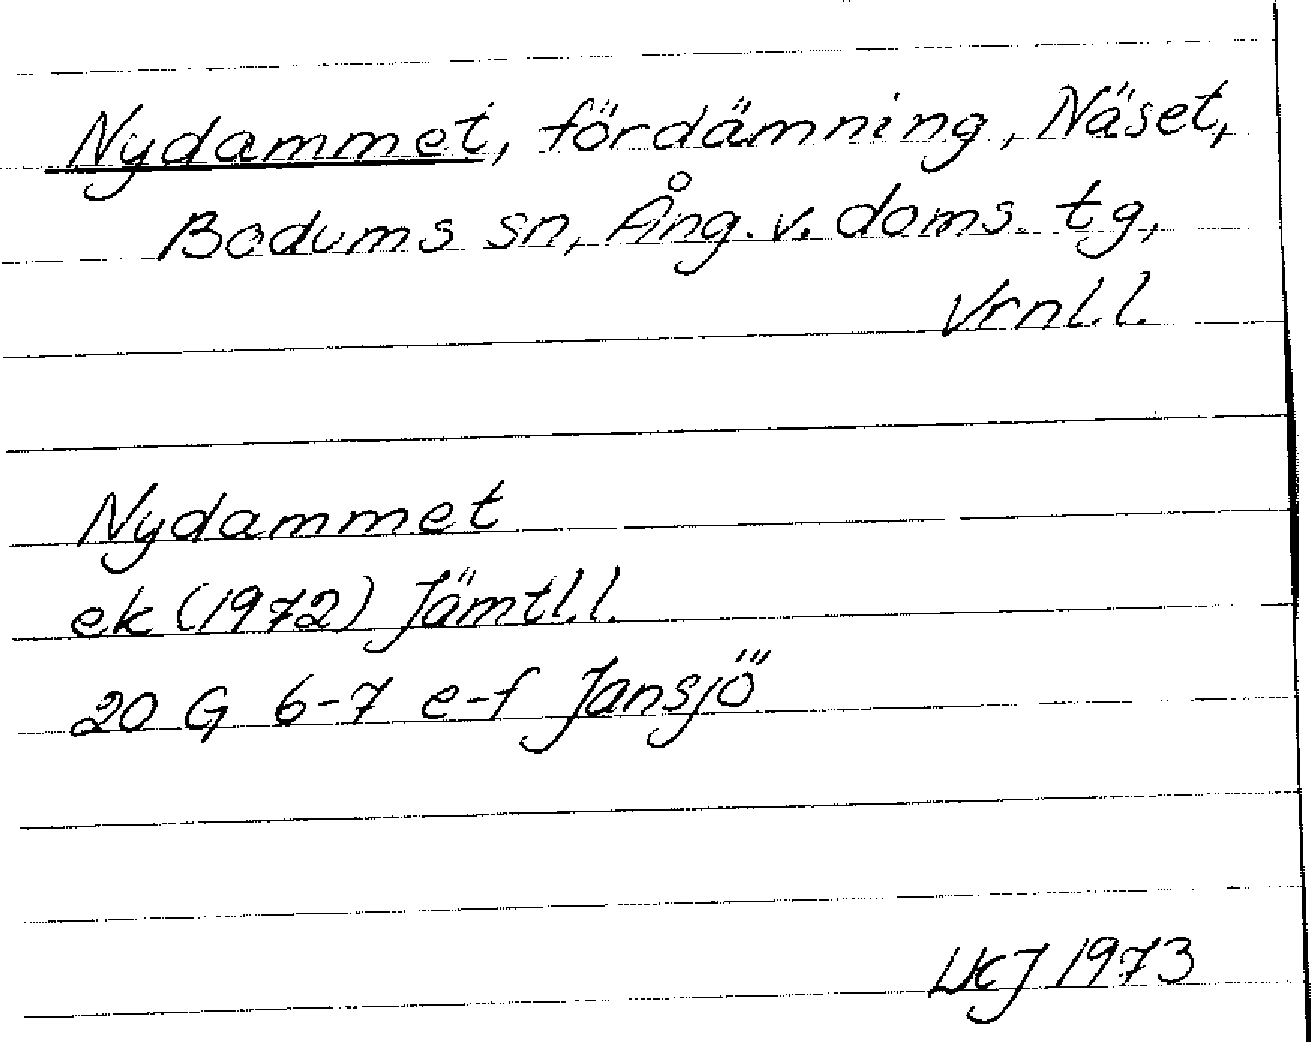 Nydammet, fördämning, Näset,
Bodums sn, Ång. v. doms. tg,
Vrnl. l.
Nydammet
ek (1972) Jämtl. l.
20 G 6-7 e-f Jansjö
1973